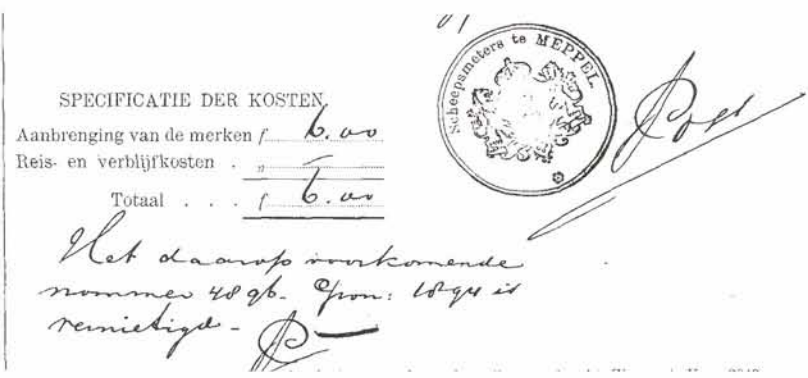 Scheepsmeters te MEPPEL.
SPECIFICATIE DER KOSTEN
Aanbrenging van de merken f 6.00
Reis- en verblijfkosten . „ —
Totaal . . . f 6.00
Het daarop voorkomende
nommer 4896. Gron: 1894 is
vernietigd -